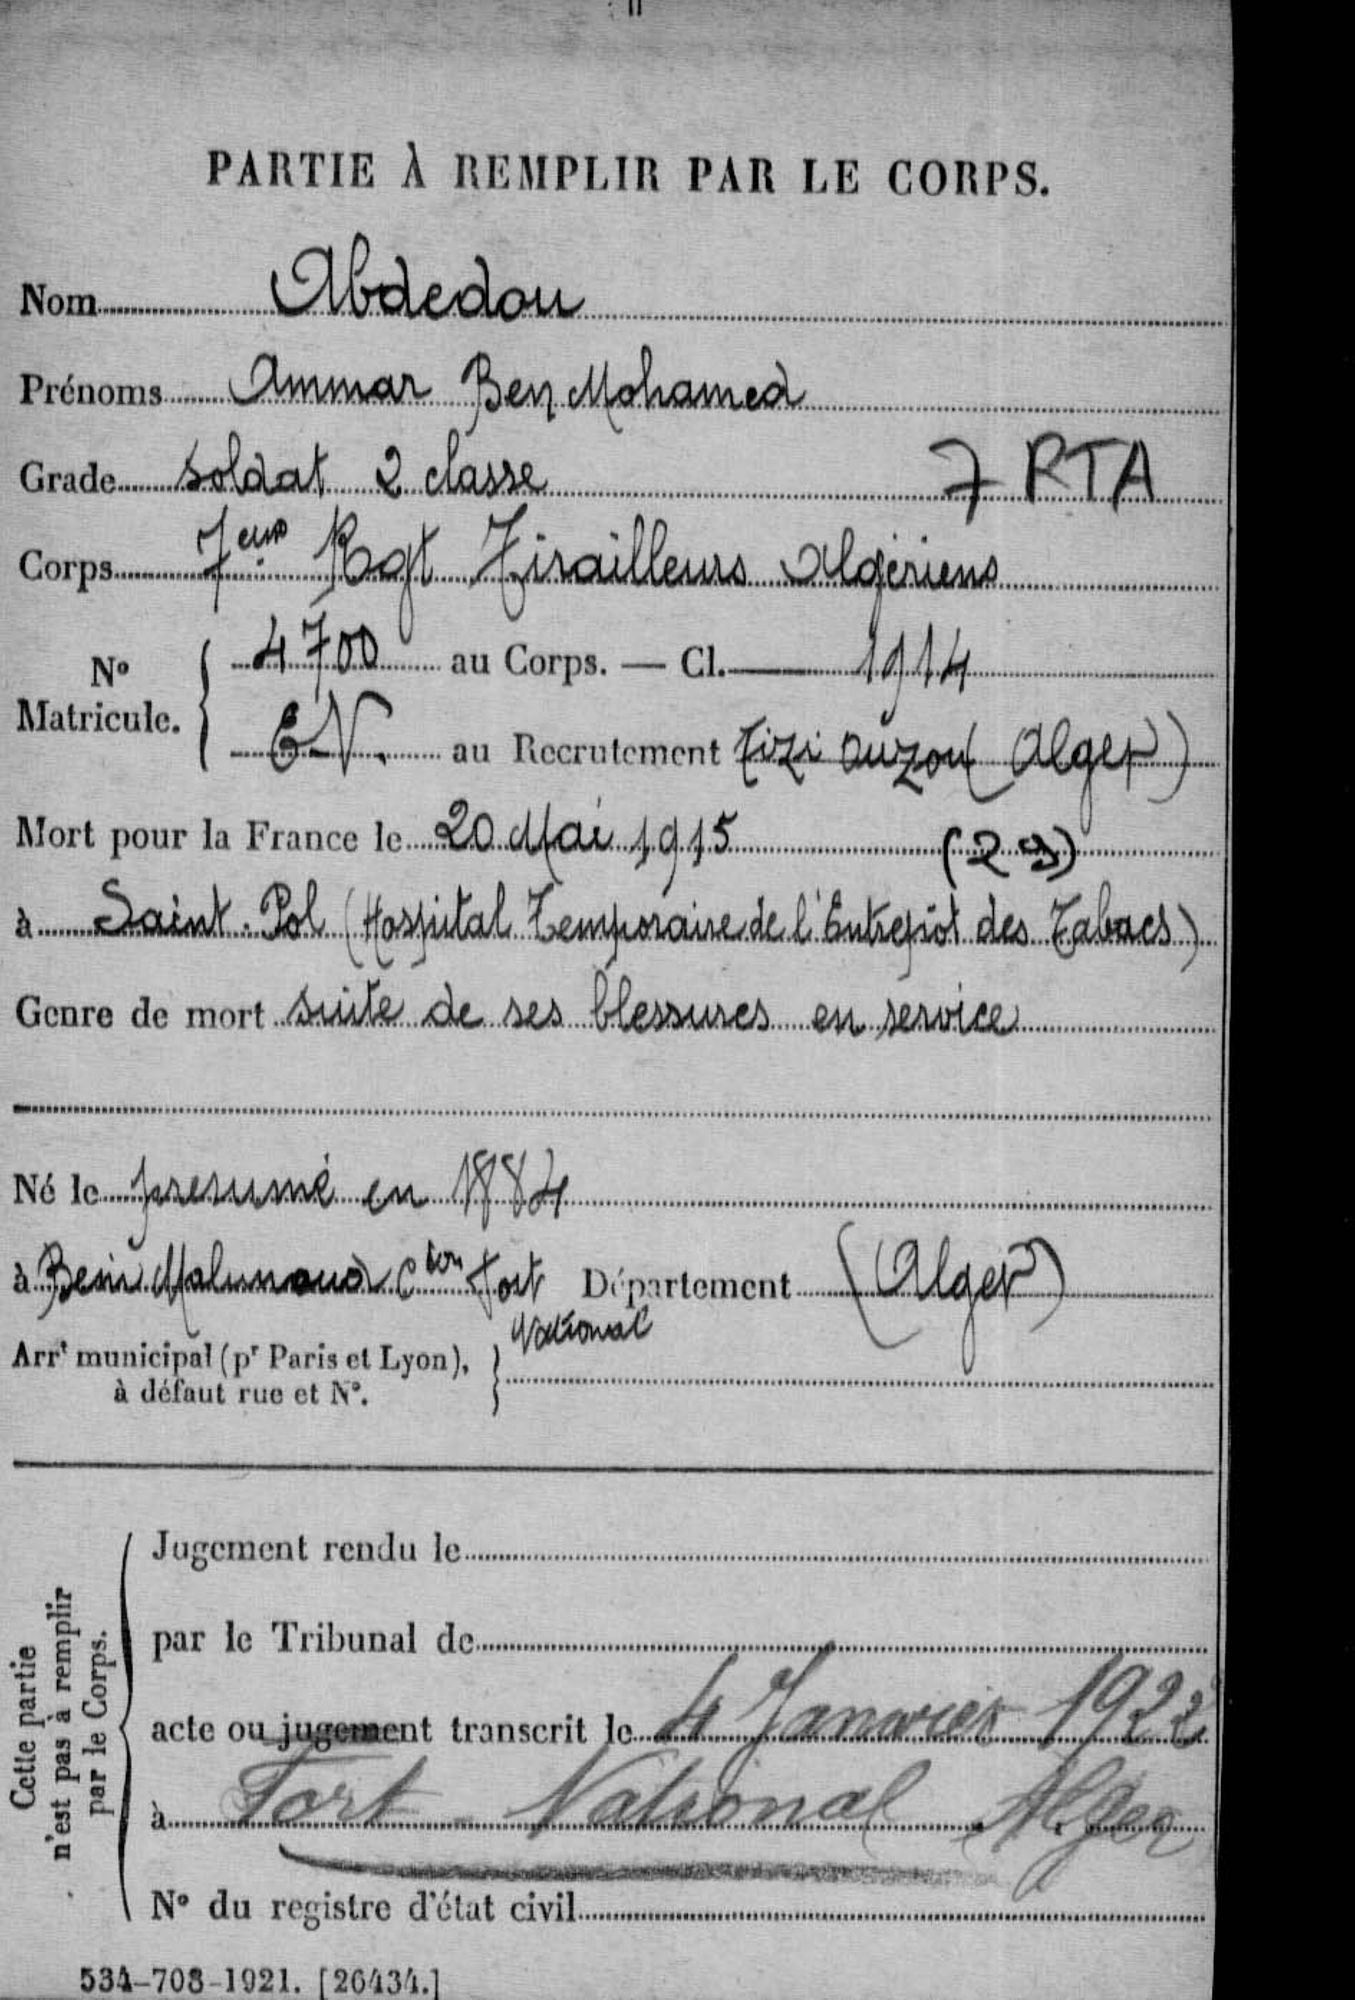 PARTIE À REMPLIR PAR LE CORPS.
Nom Abdedou
Prénoms Ammar Ben Mohamed
Grade soldat 2 classe 7 RTA
Corps 7eme Rgt Tirailleurs Algériens
N° Matricule. 4700 au Corps. — Cl. 1914
E.V. au Recrutement Tizi Ouzou (Alger)
Mort pour la France le 20 Mai 1915 (29)
à Saint-Pol (Hospital Temporaire de l'Entrepôt des Tabacs)
Genre de mort suite de ses blessures en service
Né le presumé en 1884
à Beni Mahmoud Cton Fort Département (Alger)
National
Arrt municipal (pr Paris et Lyon),
à défaut rue et N°.
Cette partie
n'est pas à remplir
par le Corps.
Jugement rendu le
par le Tribunal de
acte ou jugement transcrit le 4 Janvier 1922
à Fort-National Alger
N° du registre d'état civil
534-708-1921. [26434.]